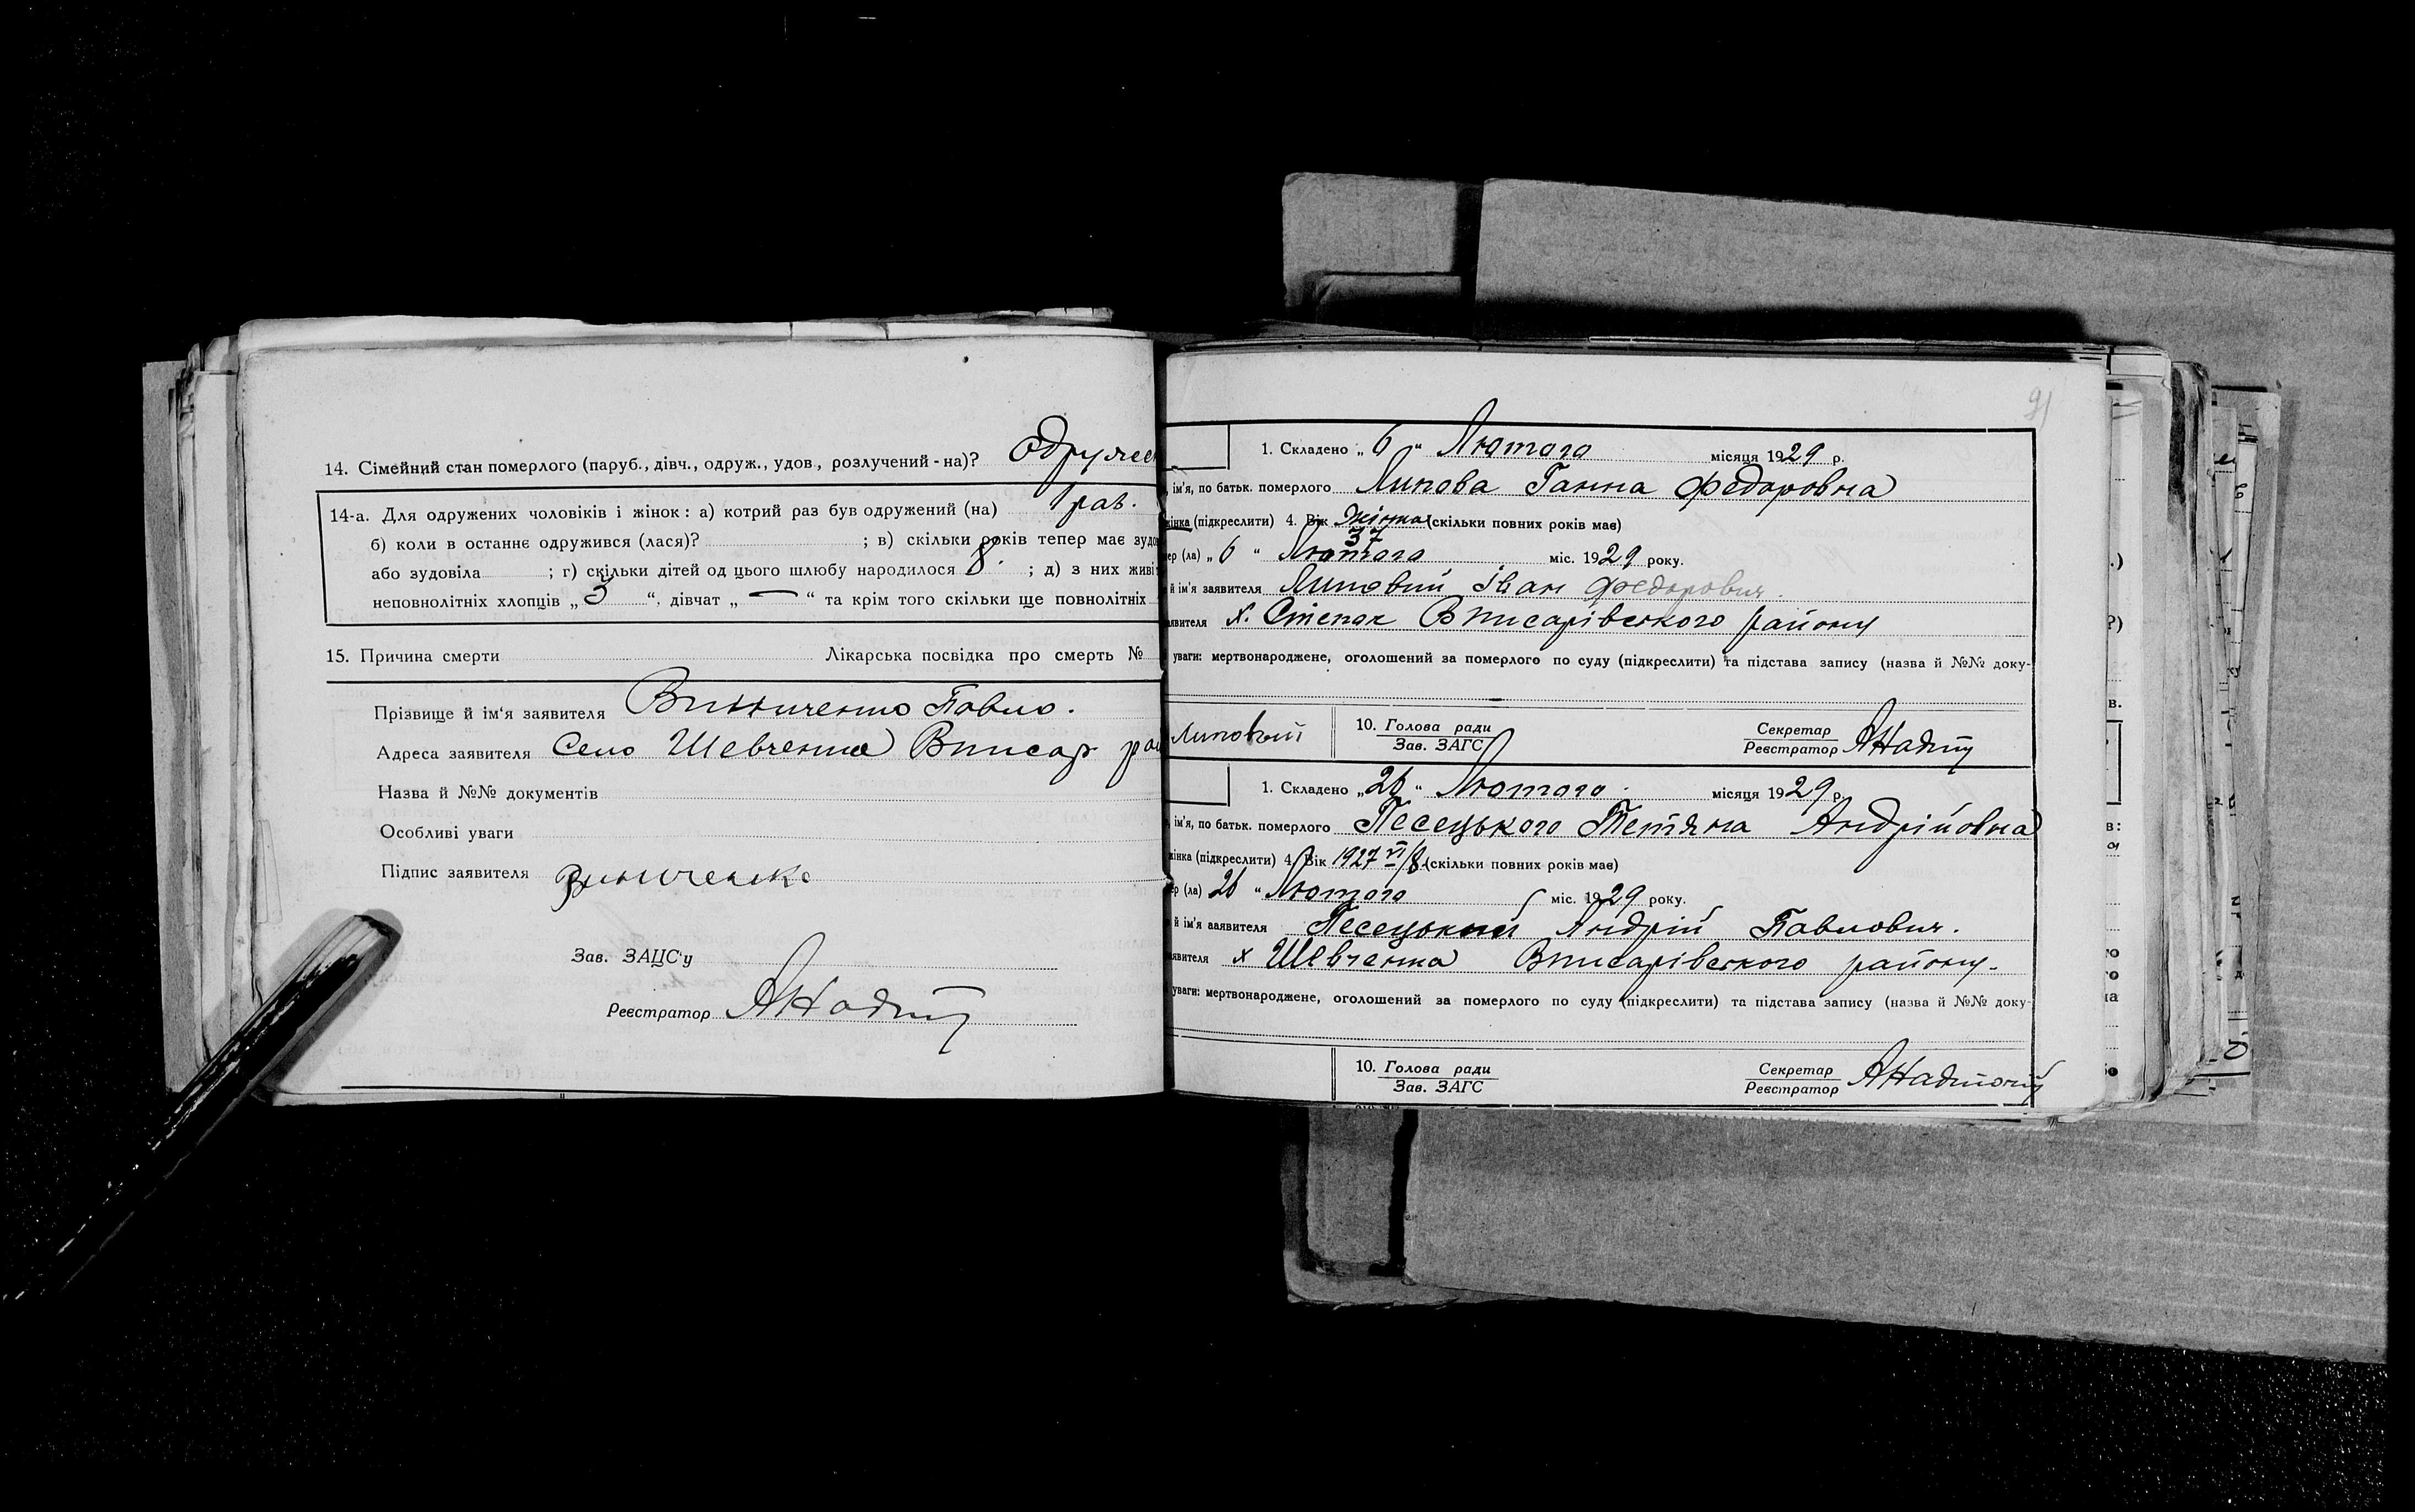 14. Сімейний стан померлого (паруб., дівч., одруж., удов., розлучений-на)? одружен
14-а. Для одружених чоловіків і жінок: а) котрий раз був одружений (на) 1 раз.
б) коли в останнє одружився (лася)? ; в) скільки років тепер має
або зудовіла ; г) скільки дітей од цього шлюбу народилося 8. ; д) з них
неповнолітніх хлопців „ 3 “, дівчат „ — “ та крім того скільки ще повнолітніх
15. Причина смерти Лікарська посвідка про смерть №
Прізвище й ім'я заявителя Винниченко Павло.
Адреса заявителя Село Шевченка Вписар
Назва й №№ документів
Особливі уваги
Підпис заявителя Винниченко
Зав. ЗАЦС'у
Реєстратор
91
1. Складено „ 6 “ Лютого місяця 1929 р.
ім'я, по батьк. померлого Липова Ганна Федоровна
(підкреслити) 4. Вік Жінка (скільки повних років має)
37
(ла) „ 6 “ Лютого міс. 1929 року.
й ім'я заявителя Липовий Іван Федорович.
х. Степок Вписарівського району
уваги: мертвонароджене, оголошений за померлого по суду (підкреслити) та підстава запису (назва й №№ доку-
Липовый
10. Голова ради
Зав. ЗАГС
Секретар
Реєстратор
1. Складено „26“ Лютого. місяця 1929 р.
ім'я, по батьк. померлого Песецького Тетяна Андрійовна
(підкреслити) 4. Вік 1927 VI/8 (скільки повних років має)
(ла) 26 “ Лютого міс. 1929 року.
й ім'я заявителя Песецький Андрій Павлович.
х Шевченка Вписарівського району.
уваги: мертвонароджене, оголошений за померлого по суду (підкреслити) та підстава запису (назва й №№ доку-
10. Голова ради
Зав. ЗАГС
Секретар
Реєстратор